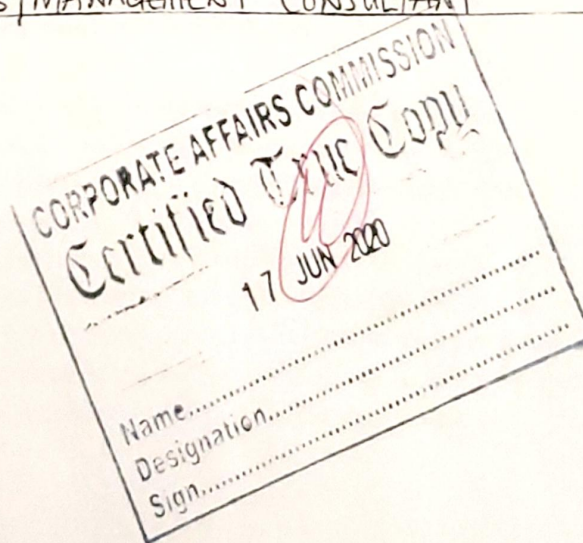 MANAGEMENT CONSULTANT
CORPORATE AFFAIRS COMMISSION
Certified True Copy
17 JUN 2020
Name
Designation
Sign